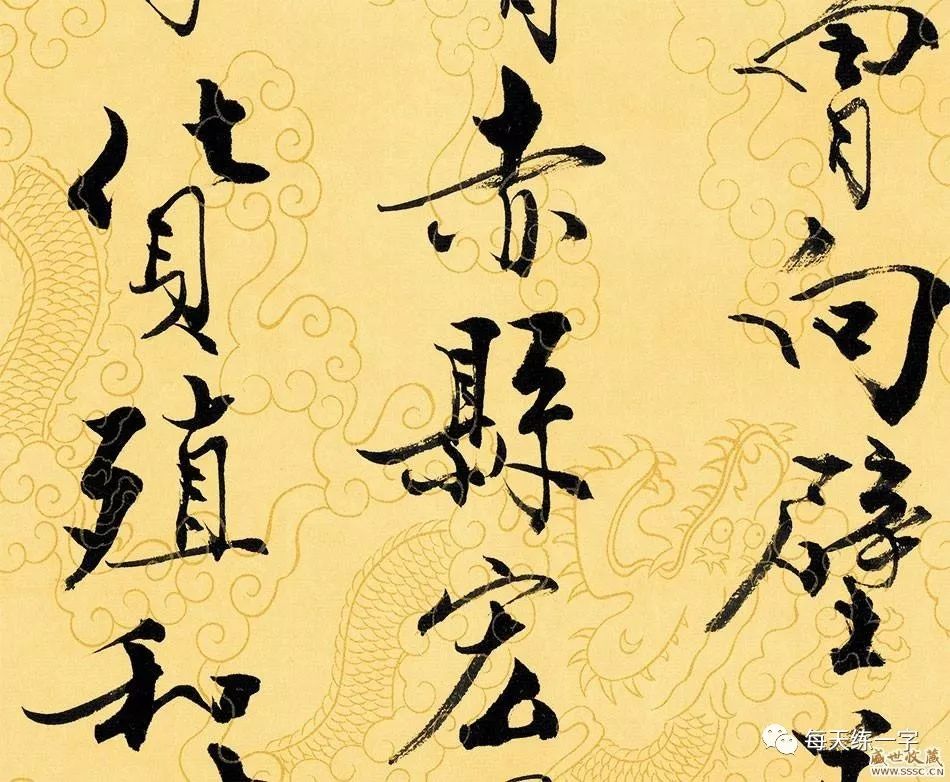 向壁
赤縣宏
貨殖和
每天练一字
盛世收藏
WWW.SSSC.CN